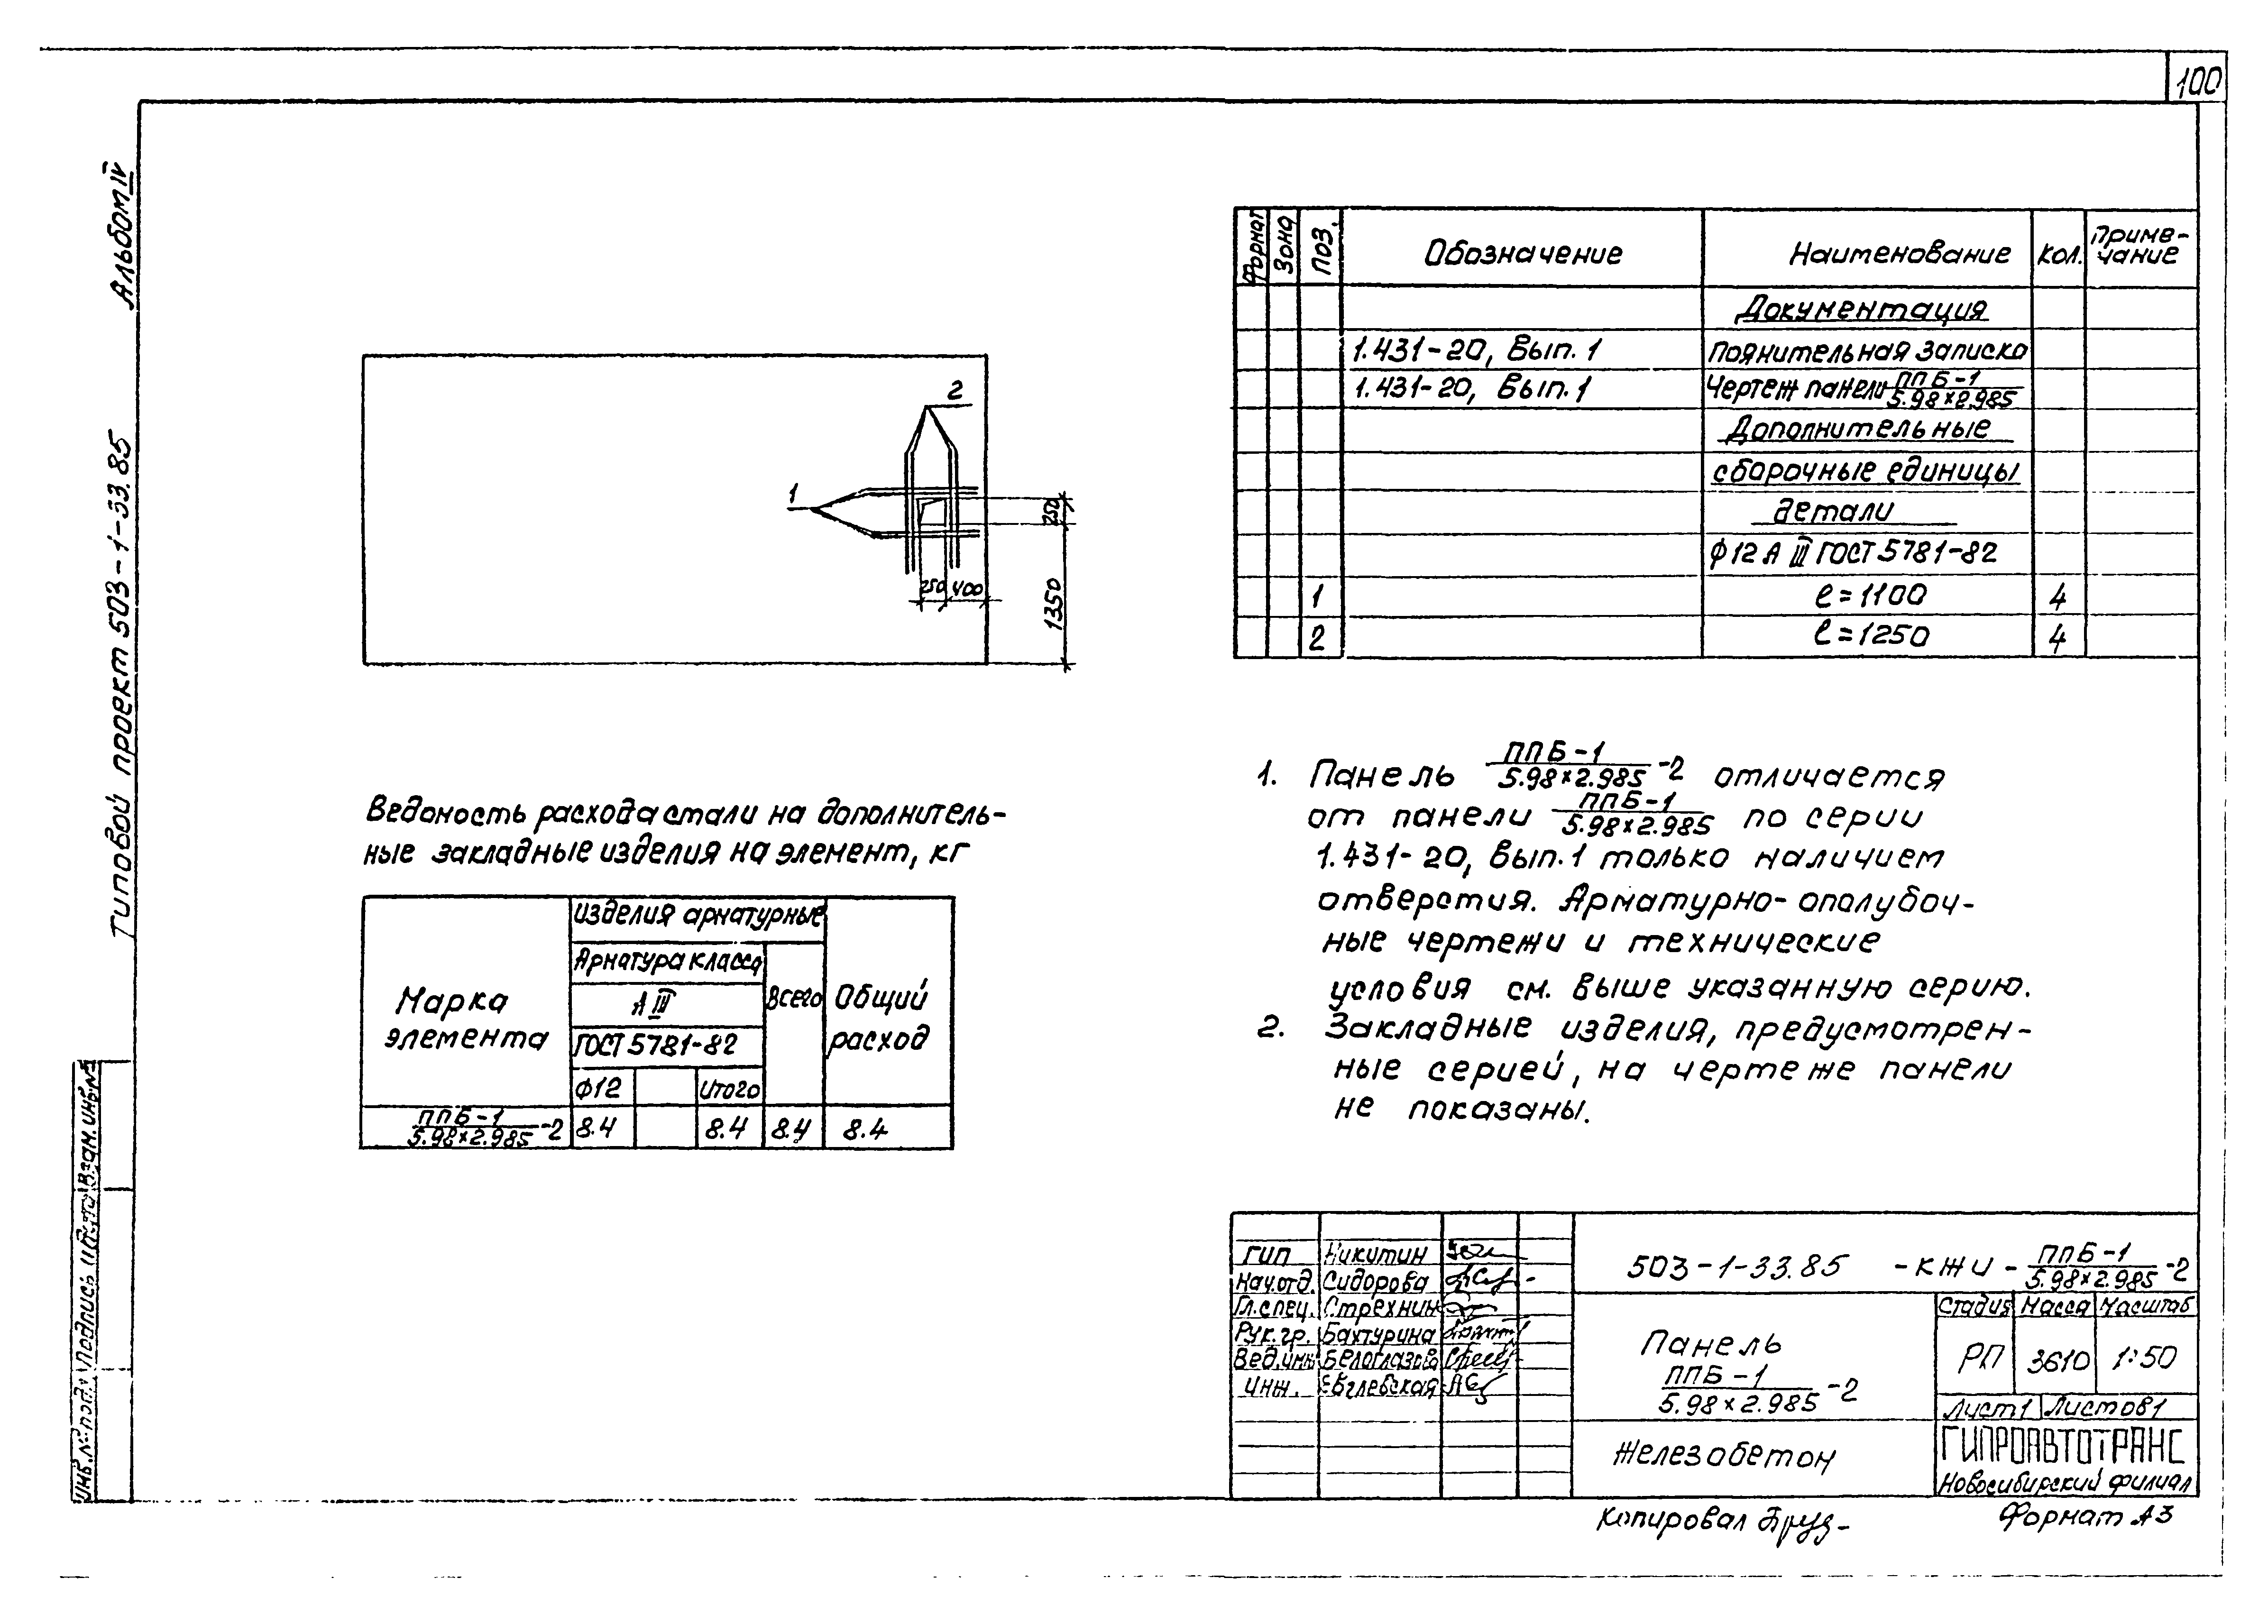 100
Альбом IV
Типовой проект 503-1-33.85
2
1
250
250
400
1350
Формат Зона Поз. Обозначение Наименование Кол. Приме-
чание
Документация
1.431-20, Вып. 1 Пояснительная записка
1.431-20, Вып. 1 Чертеж панели ППБ-1
5.98×2.985
Дополнительные
сборочные единицы
детали
Ф12 А III ГОСТ 5781-82
1 ℓ=1100 4
2 ℓ=1250 4
Ведомость расхода стали на дополнитель-
ные закладные изделия на элемент, кг
Марка
элемента
Изделия арматурные
Арматура класса
А III
ГОСТ 5781-82
Ф12 Итого
Всего
Общий
расход
ППБ-1
5.98×2.985 -2 8.4 8.4 8.4 8.4
1. Панель ППБ-1
5.98×2.985 -2 отличается
от панели ППБ-1
5.98×2.985 по серии
1.431-20, вып. 1 только наличием
отверстия. Арматурно-опалубоч-
ные чертежи и технические
условия см. выше указанную серию.
2. Закладные изделия, предусмотрен-
ные серией, на чертеже панели
не показаны.
ГИП Никитин
Нач.отд. Сидорова
Гл.спец. Стрехнин
Рук.гр. Бахтурина
Вед.инж Белоглазова
Инж. Евглевская
503-1-33.85 -КЖИ- ППБ-1
5.98×2.985 -2
Панель
ППБ-1
5.98×2.985 -2
Железобетон
Стадия Масса Масштаб
РП 3610 1:50
Лист 1 Листов 1
ГИПРОАВТОТРАНС
Новосибирский филиал
Инв.№ подл. Подпись и дата Взам.инв.№
Копировал
Формат А3